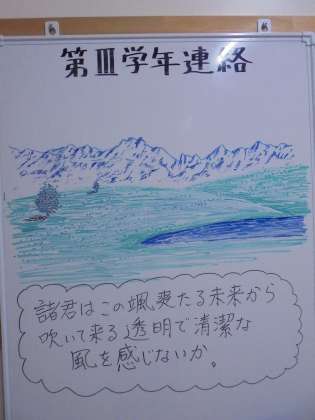 第Ⅲ学年連絡
諸君はこの颯爽たる未来から
吹いて来る透明で清潔な
風を感じないか。